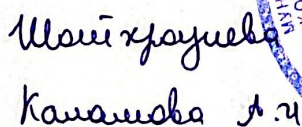 Шайхразиева
Каламова А.И